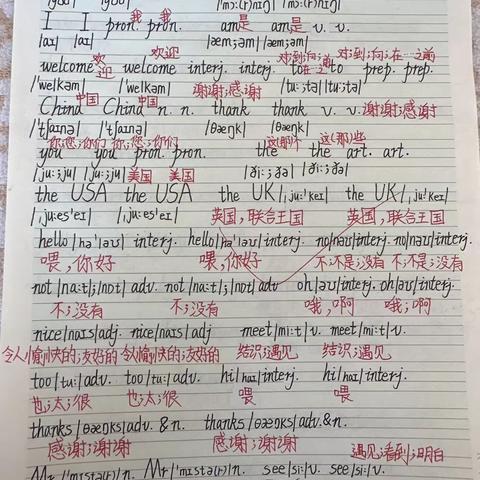 I I pron. pron. am am v. v.
我 我 是 是
|aɪ| |aɪ| |æm;əm| |æm;əm|
欢迎 欢迎 对;到;向;在…之前
welcome welcome interj. interj. to to prep. prep.
|'welkəm| |'welkəm| 谢谢;感谢 |tuː;tə||tuː;tə|
China 中国 China 中国 n. n. thank thank v. v. 谢谢;感谢
|'tʃaɪnə| |'tʃaɪnə| |θæŋk| |θæŋk|
你;您;你们 你;您;你们 这(那)个 这(那)些
you you pron. pron. the the art. art.
|juː;ju| |juː;ju| 美国 美国 |ðiː;ðə| |ðiː;ðə|
the USA the USA the UK |ˌjuː'keɪ| the UK |ˌjuː'keɪ|
|ˌjuːes'eɪ| |ˌjuːes'eɪ| 英国,联合王国 英国,联合王国
hello |hə'ləʊ| interj. hello |hə'ləʊ| interj. no |nəʊ| interj. no |nəʊ| interj.
喂,你好 喂,你好 不;不是;没有 不;不是;没有
not |nɑːt|;|nɒt| adv. not |nɑːt|;|nɒt| adv oh |əʊ| interj. oh |əʊ| interj.
不;没有 不;没有 哦,啊 哦;啊
nice |naɪs| adj. nice |naɪs| adj meet |miːt| v. meet |miːt| v.
令人愉快的;友好的 令人愉快的;友好的 结识;遇见 结识;遇见
too |tuː| adv. too |tuː| adv. hi |haɪ| interj. hi |haɪ| interj.
也;太;很 也;太;很 喂 喂
thanks |θæŋks| adv. & n. thanks |θæŋks| adv. & n.
感谢;谢谢 感谢;谢谢 遇见;看到;明白
Mr |'mɪstə(r)| n. Mr |'mɪstə(r)| n. see |siː| v. see |siː| v.